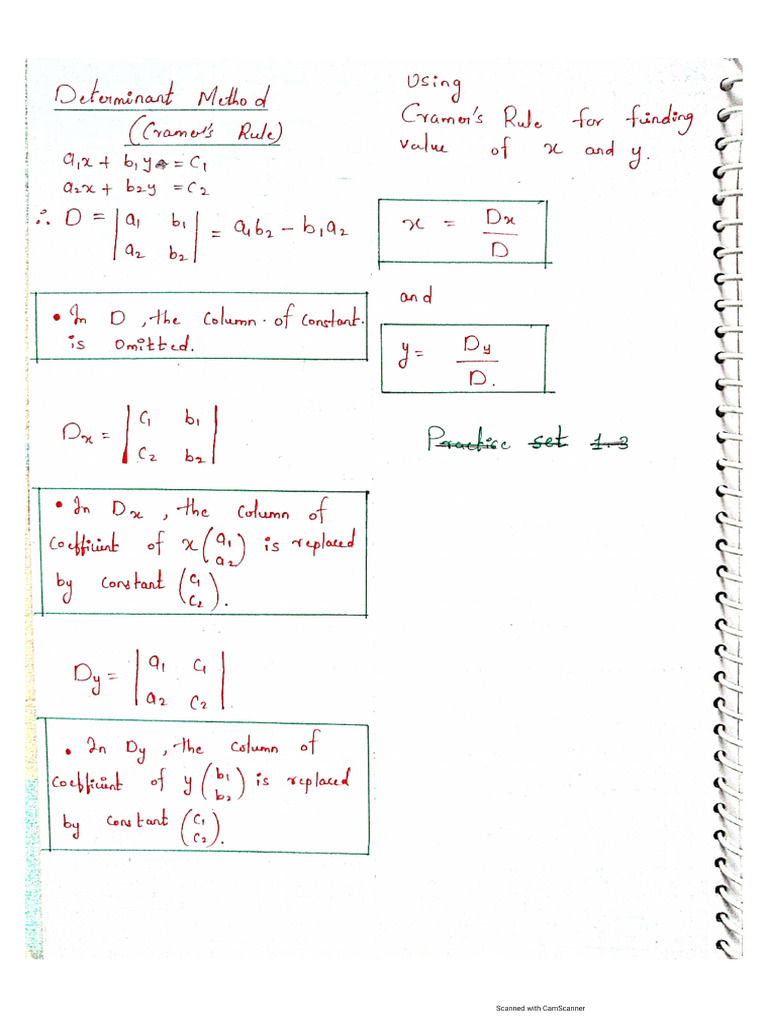 Determinant Method
(Cramer's Rule)
a₁x + b₁y = C₁
a₂x + b₂y = C₂
∴ D = | a₁ b₁ | = a₁b₂ - b₁a₂
| a₂ b₂ |
• In D, the column of constant.
is omitted.
Dx = | C₁ b₁ |
| C₂ b₂ |
• In Dx, the column of
coefficient of x (a₁ a₂) is replaced
by constant (C₁ C₂).
Dy = | a₁ C₁ |
| a₂ C₂ |
• In Dy, the column of
coefficient of y (b₁ b₂) is replaced
by constant (C₁ C₂).
Using
Cramer's Rule for finding
value of x and y.
x = Dx / D
and
y = Dy / D.
Practice set 1.3
Scanned with CamScanner